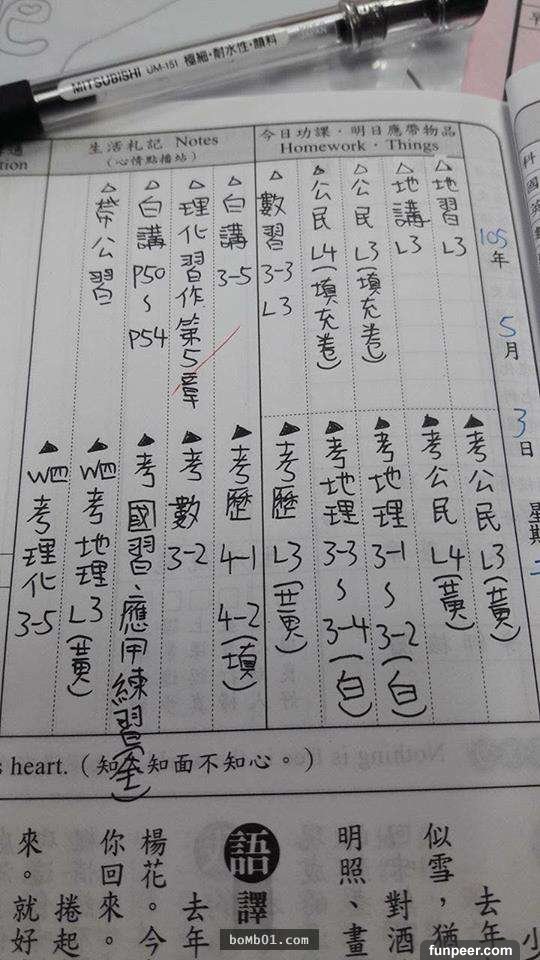 MITSUBISHI UM-151 極細・耐水性・顏料
tion
生活札記 Notes
(心情點播站)
今日功課・明日應帶物品
Homework・Things
科
國
105年
5月
3日
星期
△地習 L3
△地講 L3
△公民 L3(填充卷)
△公民 L4(填充卷)
△數習 3-3 L3
△白講 3-5
△理化習作第5章
△白講 P50~P54
△帶公習
▲考公民 L3(黃)
▲考公民 L4(黃)
▲考地理 3-1~3-2(白)
▲考地理 3-3~3-4(白)
▲考歷 L3(黃)
▲考歷 4-1 4-2(填)
▲考數 3-2
▲考國習、應用練習(全)
▲W四考地理 L3(黃)
▲W四考理化 3-5
s heart.(知人知面不知心。)
Nothing is
去年
似雪,猶
對酒
明照、畫
語譯
去年
楊花。今
你回來。
捲起
來。就好
boMb01.com
funpeer.com